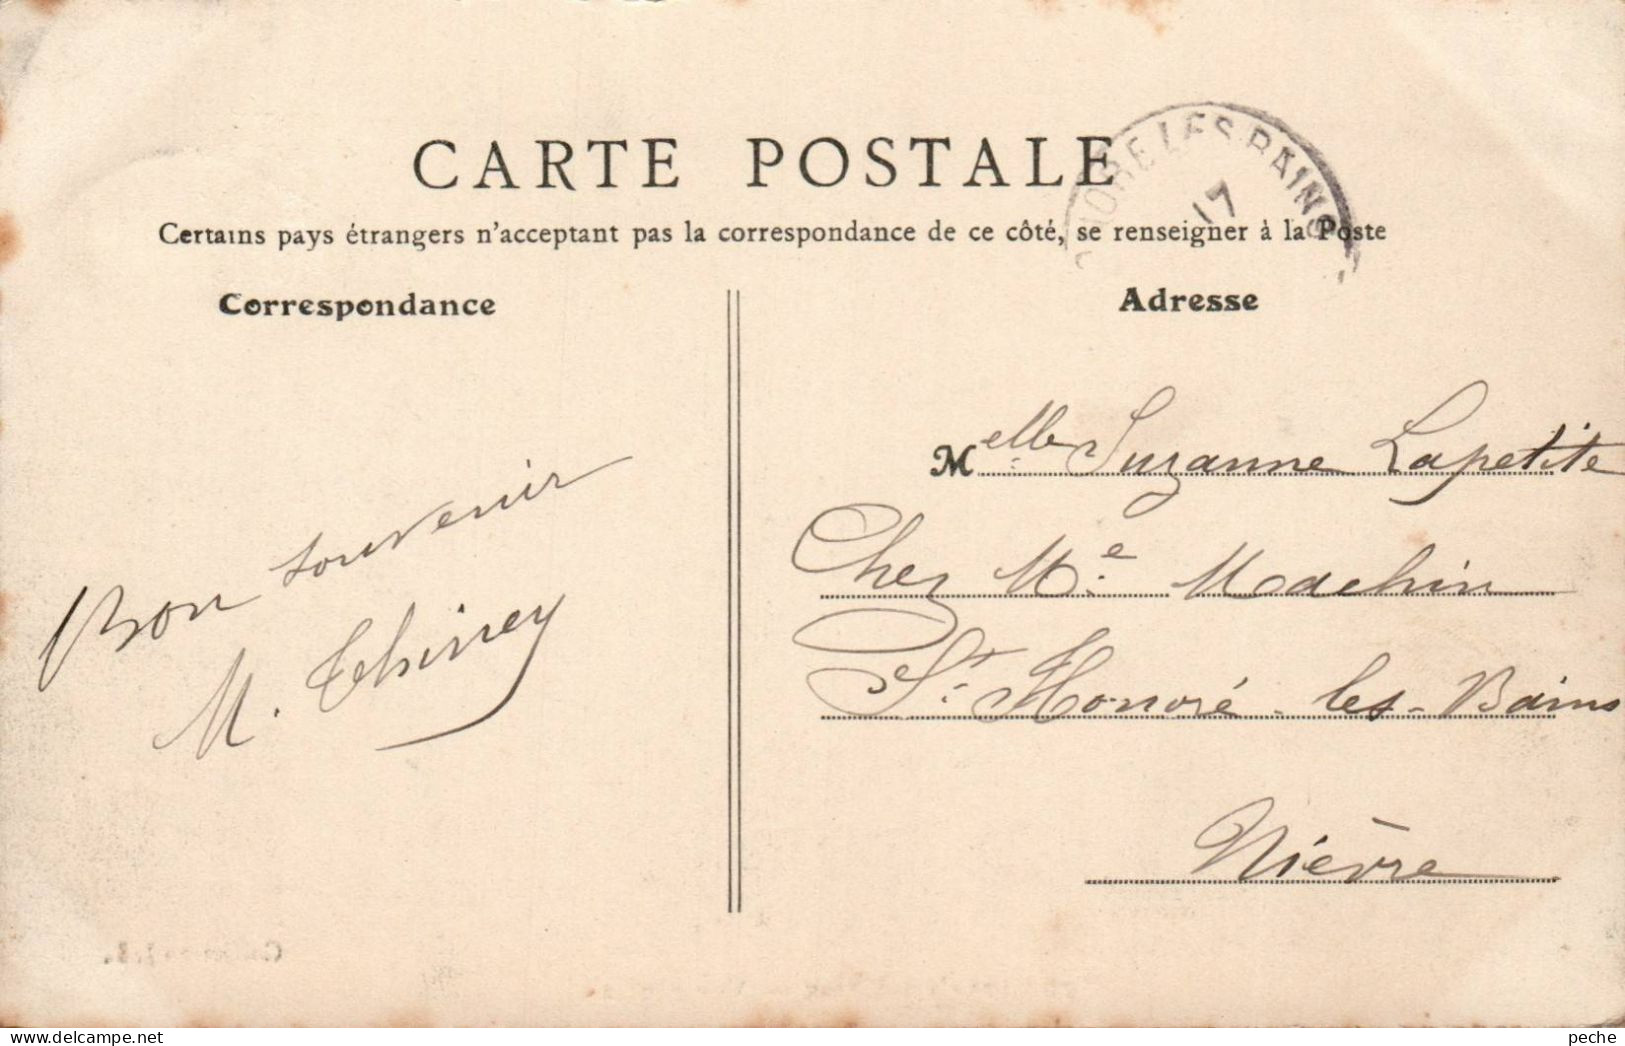 CARTE POSTALE
Certains pays étrangers n'acceptant pas la correspondance de ce côté, se renseigner à la Poste
Correspondance
Bon souvenir
M. Thirrey
Adresse
Melle Suzanne Lapetite
Chez Me. Machin
St. Honoré-les-Bains
Nièvre
NORE LES BAINS
17
peche